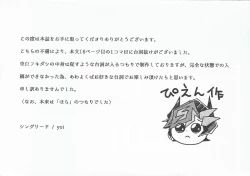 この度は本誌をお手に取ってくださりありがとうございます。
こちらの不備により、本文18ページ目の1コマ目に台詞抜けがございました。
空白フキダシの中身は促すような台詞が入るつもりで制作しておりますが、完全な状態での入
稿ができなかった為、あわよくばお好きな台詞でお楽しみ頂けたらと思います。
申し訳ありませんでした。
(なお、本来は「ほら」のつもりでした)
シングリーチ / yoi
ぴえん作